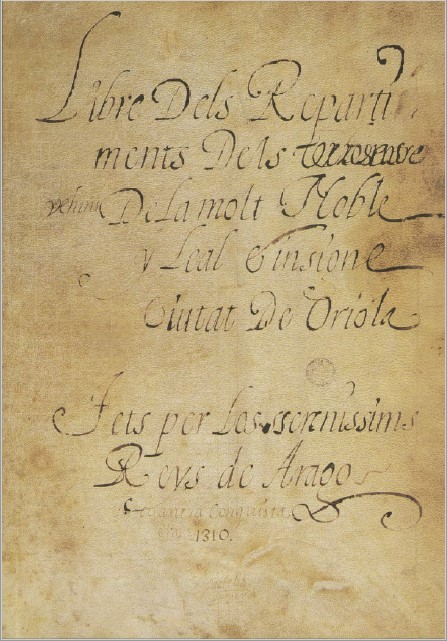 Libre Dels Reparti
ments Dels
vehins De la molt Noble
y Leal & insigne
Ciutat De Oriola
Fets per los serenissims
Reys de Arago
Conquista
1310.